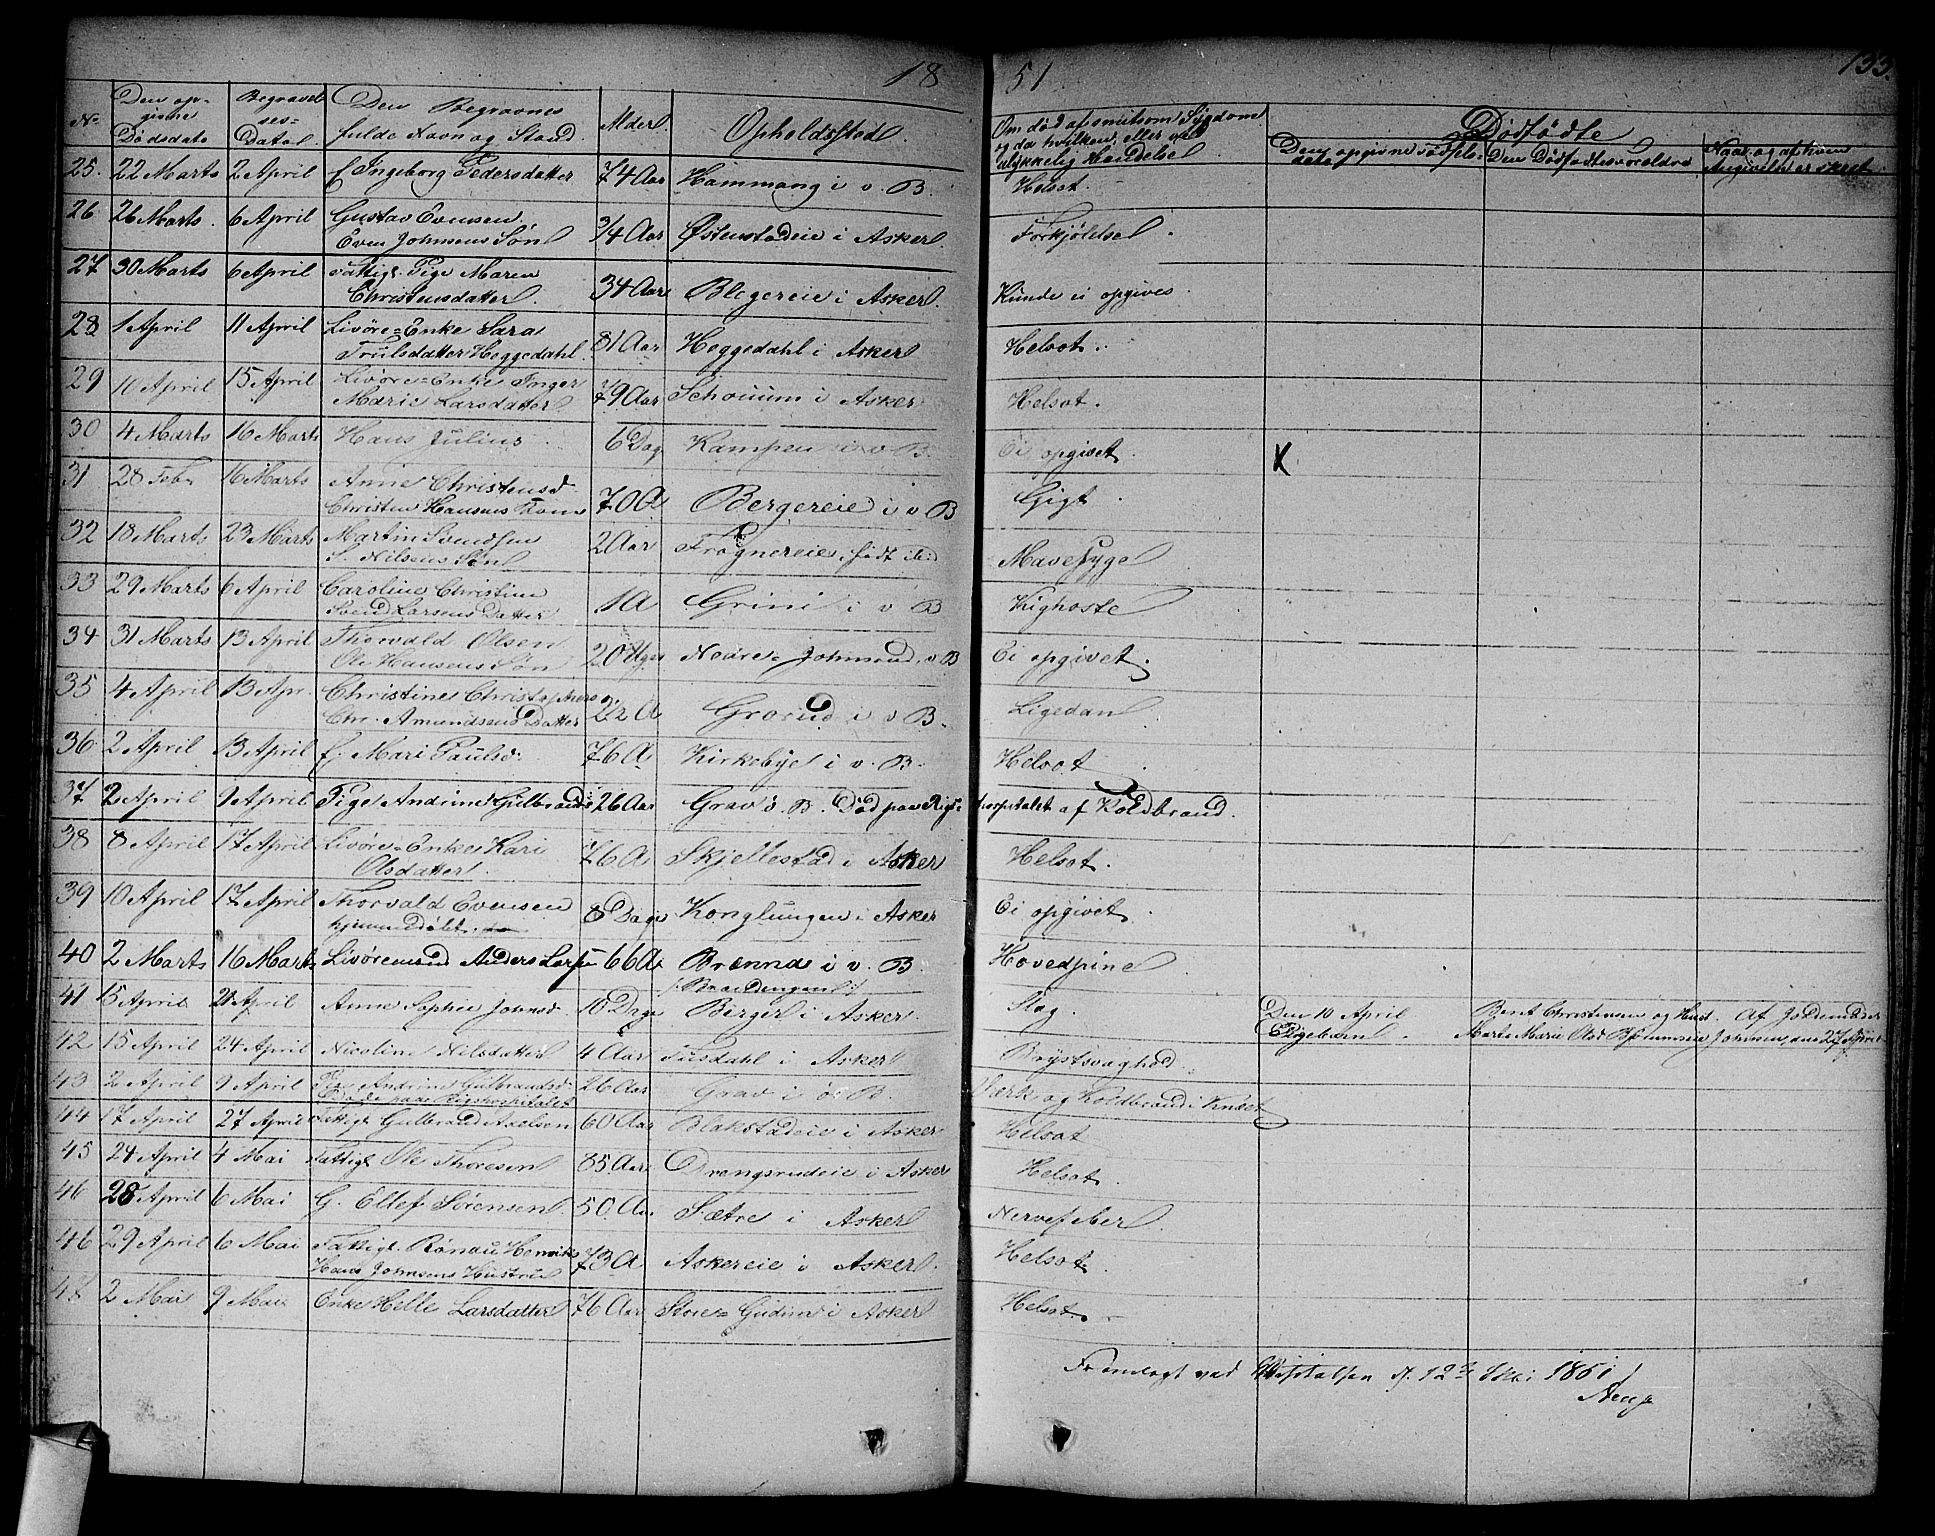 18 51
133.
No
Den op-
givne
Dödsdato
Begravel-
ses-
Datol.
Den Begravnes
fulde Navn og Stand
Alder.
Opholdssted.
Om död af smitsom Sygdom
og da hvilken, eller ved
ulykkelig Hændelse
Dödfödte
Den opgivne Födsels-
dato
Den Dödfödtes Forældre
Naar og af hvem
Angivelse er skeet.
25. 22 Marts 2 April f Ingeborg Pedersdatter 74 Aar Hammang i v. B. Helsot.
26 26 Marts. 6 April Gustav Evensen
Even Johnsens Sön 3/4 Aar Østenstadeie i Asker. Forkjölelse.
27 30 Marts 6 April Fattigl. Pige Maren
Christensdatter. 34 Aar Blegereie i Asker. Kunde ei opgives.
28 1 April 11 April Livöre-Enke Sara
Trulsdatter Heggedahl. 81 Aar Heggedahl i Asker Helsot.
29 10 April 15 April Livöre-Enke Inger
Marie Larsdatter 79 Aar Schouum i Asker Helsot.
30 4 Marts 16 Marts Hans Julius 6 Dag Kampen i v B. Ei opgivet. X
31 28 Febr 16 Marts Anne Christensd.
Christen Hansens Kone 70 A Bergereie i v B Gigt.
32 18 Marts 23 Marts Martin Svendsen
S. Nilsens Sön 2 Aar Frognereie, födt ibid Mavesyge
33 29 Marts 6 April Caroline Christine
Svend Larsens Datter 1 A Grini i v B Kighoste
34 31 Marts 13 April Thorvald Olsen
Ole Hansens Sön 20 Uger Nedre-Johnsrud, v B Ei opgivet.
35 4 April 13 Apr. Christine Christophers
Chr. Amundsens Datter 22 A Grorud i v B. Ligedan
36 2 April 13 April f. Mari Paulsd. 76 A Kirkebye i v. B. Helsot
37 2 April 9 April Pige Andrine Gulbrandsd 26 Aar Grav ö. B. Död paa Rigs-hospitalet af Koldbrand.
38 8 April 17 April Livöre-Enke Kari
Olsdatter. 76 A Skjellestad i Asker Helsot.
39 10 April 17 April Thorvald Evensen
hjemmedöbt. 8 Dage Konglungen i Asker Ei opgivet.
40 2 Marts 16 Marts Livöremand Anders Larsen 66 A Brænna i v. B. Hovedpine
41 15 April 21 April Anne Sophie Johnsd. 10 Dage Berger i Asker. Slag. Den 10 April
Pigebarn. Bent Christensen og Hust.
Marte Marie Olsd Af Jordemoder
Johnsen, den 27 April
42 15 April 24 April Nicoline Nilsdatter 4 Aar Tusdahl i Asker Brystsvaghed
43 2 April 9 April Pige Andrine Gulbrandsd.
Döde paa Rigshospitalet 26 Aar Grav i ö. B. Værk og Koldbrand i Knæet
44 17 April 27 April Fattigl. Gulbrand Axelsen 60 Aar Blakstadeie i Asker Helsot
45 24 April 4 Mai Fattigl Ole Thoresen 85 Aar Drengsrudeie i Asker Helsot.
46 28 April 6 Mai G. Ellef Sörensen 50 Aar Sætre i Asker Nervefeber.
46 29 April 6 Mai Fattigl. Rönau Henriks
Hans Johnsens Hustrue 73 A Askereie i Asker. Helsot.
47 2 Mai 9 Mai Enke Helle Larsdatter 76 Aar Store-Gudim i Asker Helsot.
Fremlagt ved d. 12te Mai 1851